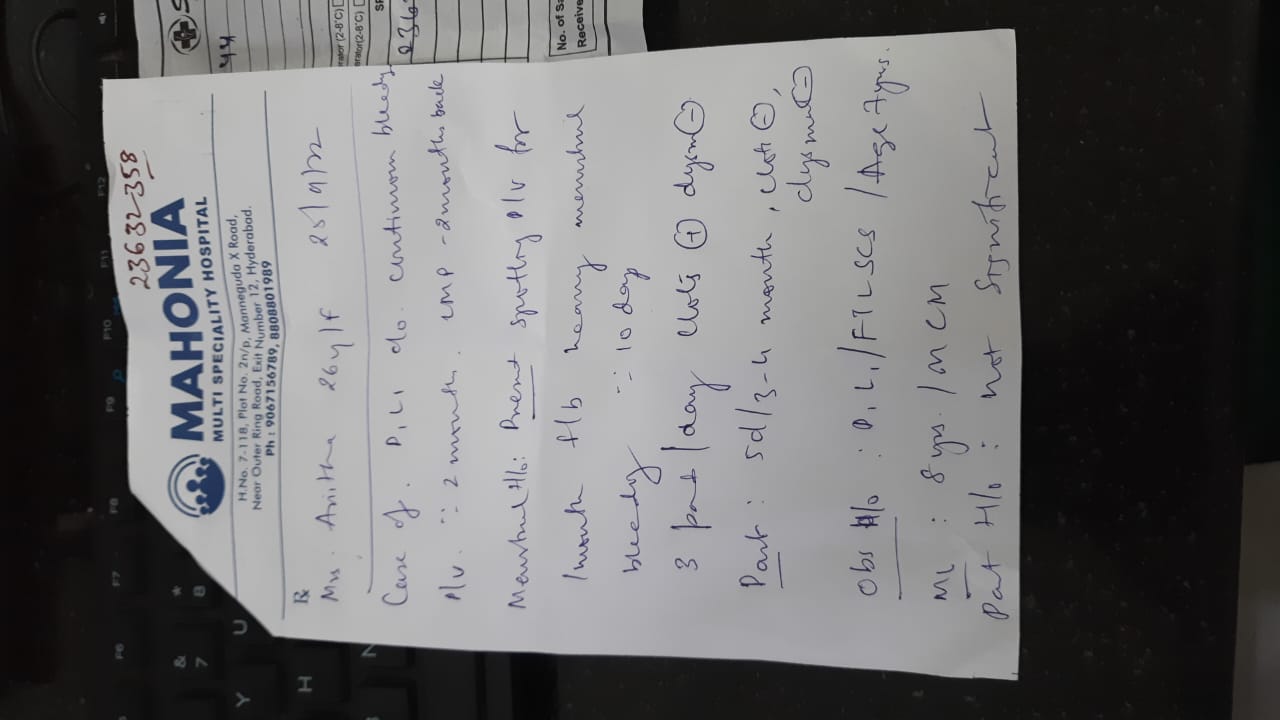 23632358
MAHONIA
MULTI SPECIALITY HOSPITAL
H.No. 7-118, Plot No. 2n/p, Manneguda X Road,
Near Outer Ring Road, Exit Number 12, Hyderabad.
Ph : 9067156789, 8808801989
Rx
Mrs. Anitha 26y/F
Case of. P1L1 c/o. continuous bleedg
P/v. :: 2 months. LMP - 2months back
Menstrual H/o: Present spotting P/V for
1month f/b heavy menstrual
bleeding :: 10 day
3 pad/day clots (+) dysm (-)
Past: 5d/3-4 month, clots (-),
dysmn (-)
Obs H/o : P1L1/FTLSCS /Age 7yrs.
ML : 8yrs. / NCM
Past H/o : not significant
44
No. of
Receive
F12
F11
F10
F9
F8
F7
F6
*
8
&
7
U
Y
H
N